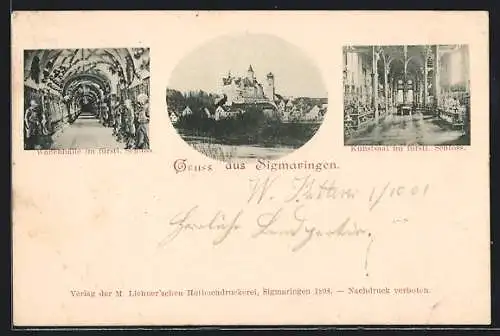 Waffenhalle im fürstl. Schloss.
Kunstsaal im fürstl. Schloss.
Gruss aus Sigmaringen.
1/10 01
Herrliche Landpartie.
Verlag der M. Liehner'schen Hofbuchdruckerei, Sigmaringen 1898. — Nachdruck verboten.